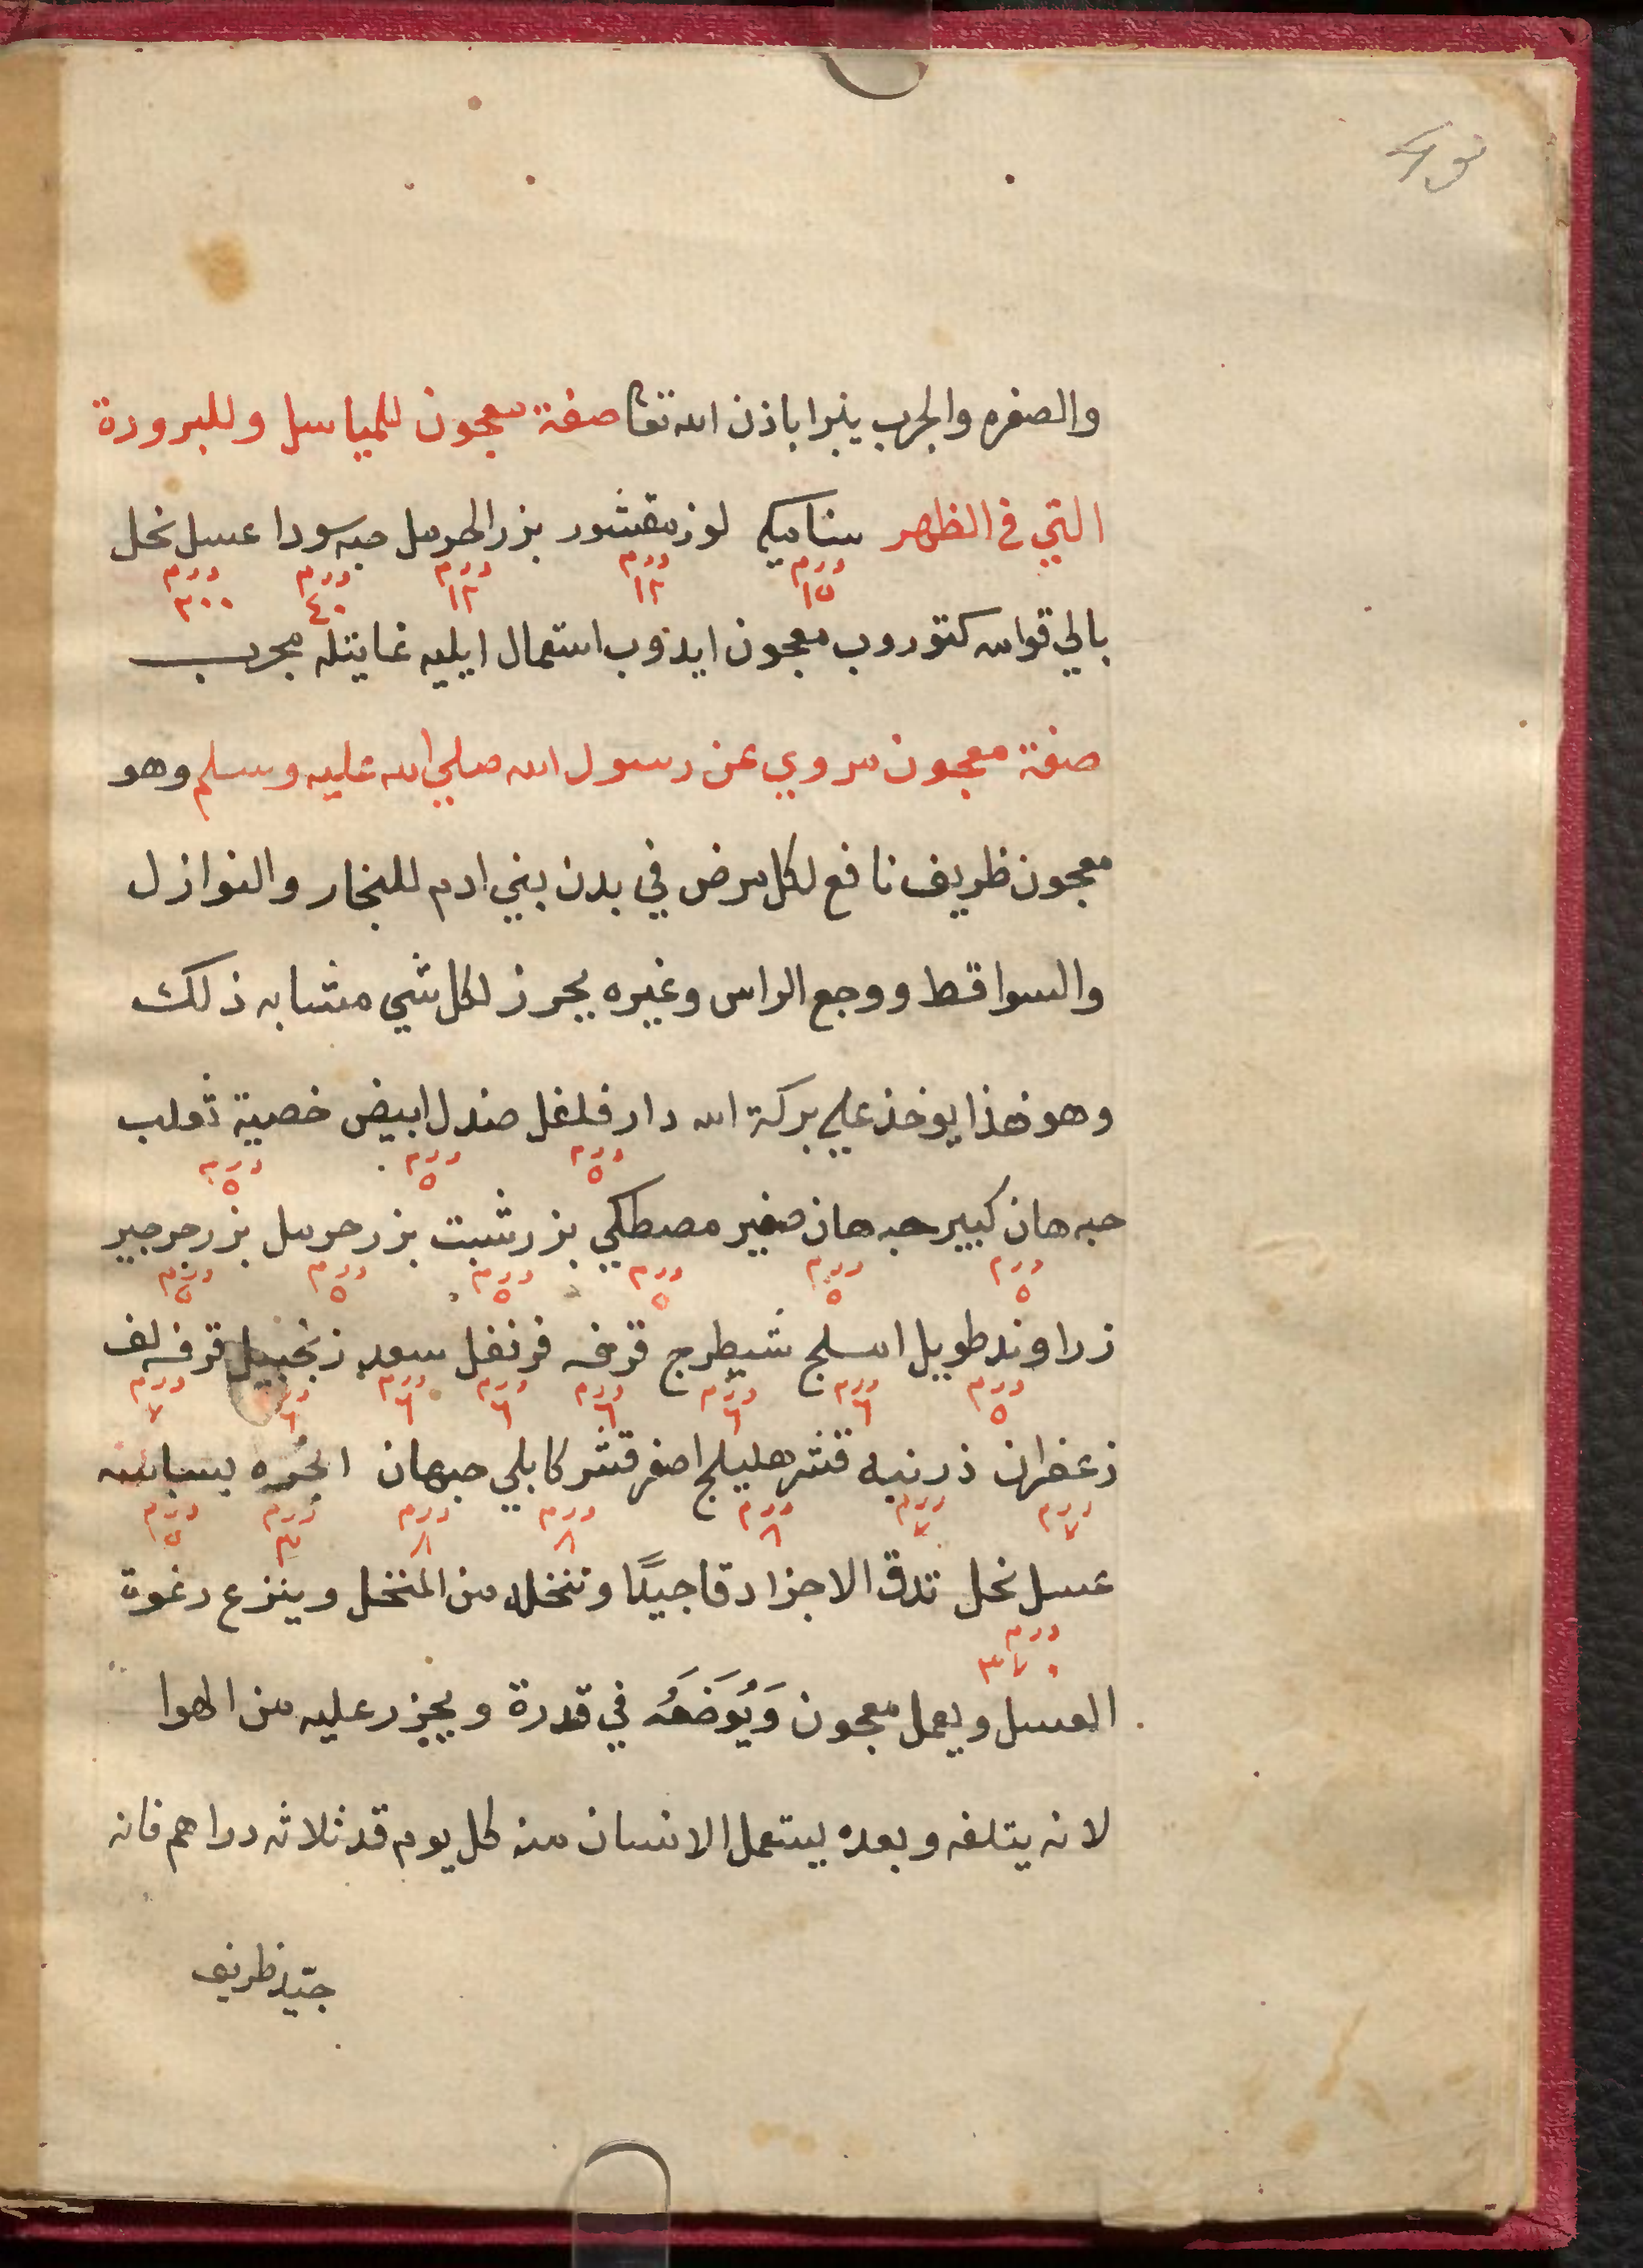 والصفره والجرب ينبرا باذن الله تعا صفة معجون للمياسل وللبرودة
التي في الظهر سناميكي لوز مقشور بزر الحرمل حبه سودا عسل نحل
درم ١٥ درم ١٢ درم ١٢ درم ٤٠ درم ٣٠٠
بالي قوامه كتوروب معجون ايدوب استعمال ايليه غايتله مجرب
صفة معجون مروي عن رسول الله صلي الله عليه وسلم وهو
معجون ظريف نافع لكل مرض في بدن بني ادم للبخار والنوازل
والسواقط ووجع الراس وغيره يحرز لكل شي مشابه ذلك
وهو هذا يوخذ علي بركة الله دار فلفل صندل ابيض خصية ثعلب
درم ٥ درم ٥ درم ٥
حبه هان كبير حبه هان صغير مصطكي بزر شبت بزر حرمل بزر جرجير
درم ٥ درم ٥ درم ٥ درم ٥ درم ٥ درم ٥
زراوند طويل املج شيطرج قرفه قرنفل سعد زنجبيل قرفه لف
درم ٥ درم ٦ درم ٦ درم ٦ درم ٦ درم ٦ درم ٦ درم ٧
زعفران ذرنبه قشر هليلج اصفر قشر كابلي حبهان انجره بسباسه
درم ٧ درم ٧ درم ٨ درم ٨ درم ٨ درم ٣ درم ٥
عسل نحل تدق الاجزا دقا جيدًا وتنخله من المنخل وينزع رغوة
درم ٣٧٠
العسل ويعمل معجون وَيُوَضَعُه في قدرة ويحرز عليه من الهوا
لانه يتلفه وبعده يستعمل الانسان منه كل يوم قد ثلاثه دراهم فانه
جيّد ظريف